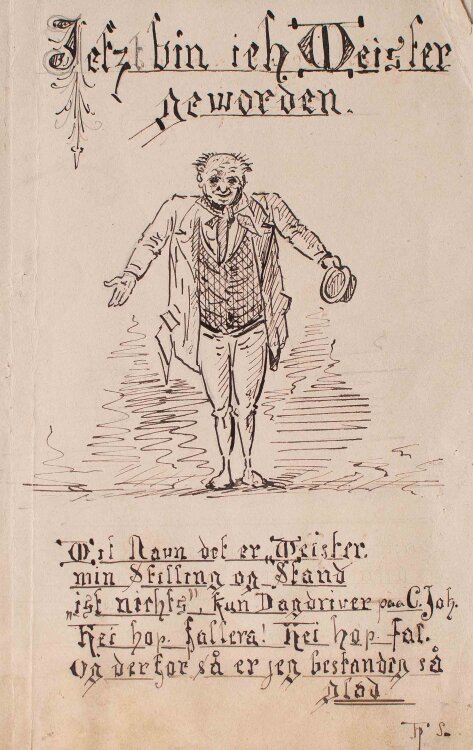 Jetzt bin ich Meister
geworden.
Mit Navn det er „Meister.
min Stilling og Stand
„ist nichts", kun Dagdriver paa C. Joh.
Hei hop fallera! Hei hop fal.
Og derfor så er jeg bestandig så
glad.
Th. S.